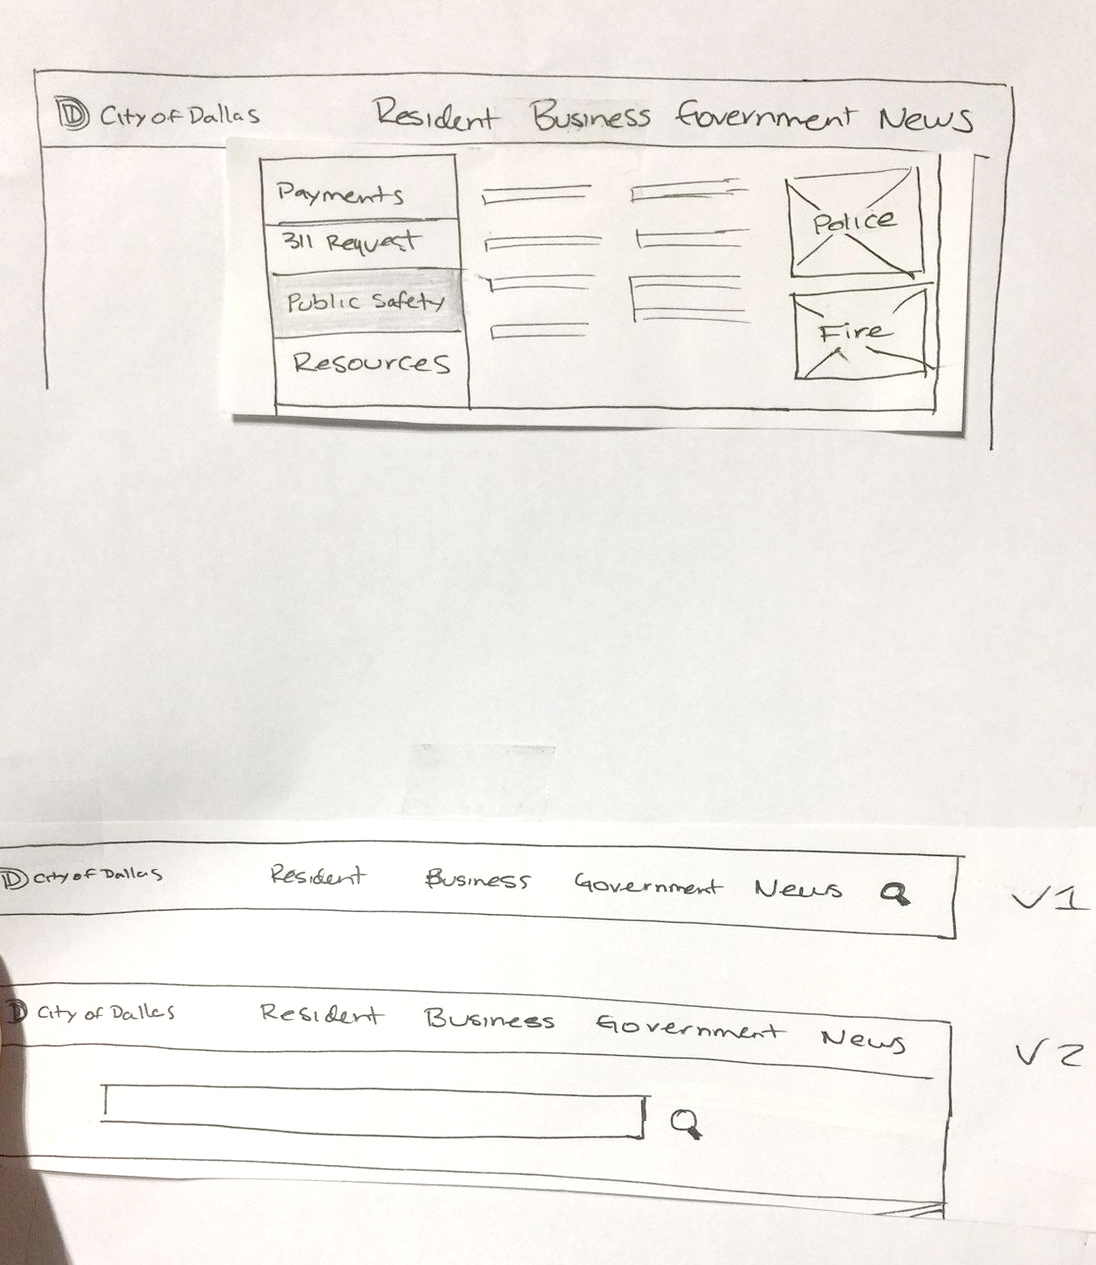 D City of Dallas Resident Business Government News
Payments
311 Request
Public Safety
Resources
Police
Fire
D City of Dallas Resident Business Government News
V1
D City of Dallas Resident Business Government News
V2